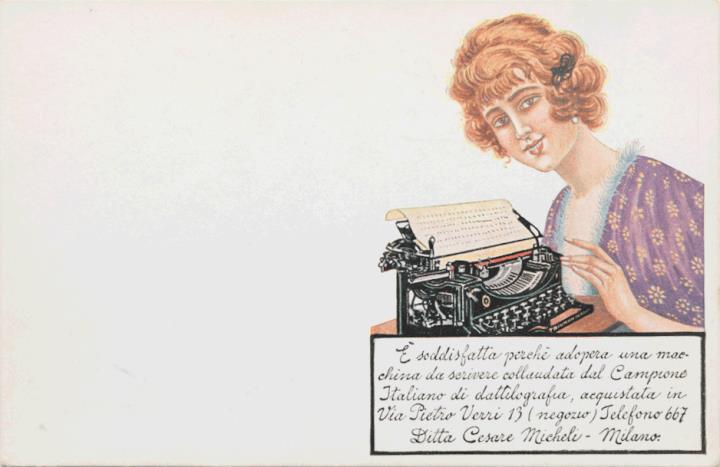 È soddisfatta perchè adopera una mac-
china da scrivere collaudata dal Campione
Italiano di dattilografia, acquistata in
Via Pietro Verri 13 (negozio) Telefono 667
Ditta Cesare Micheli - Milano.